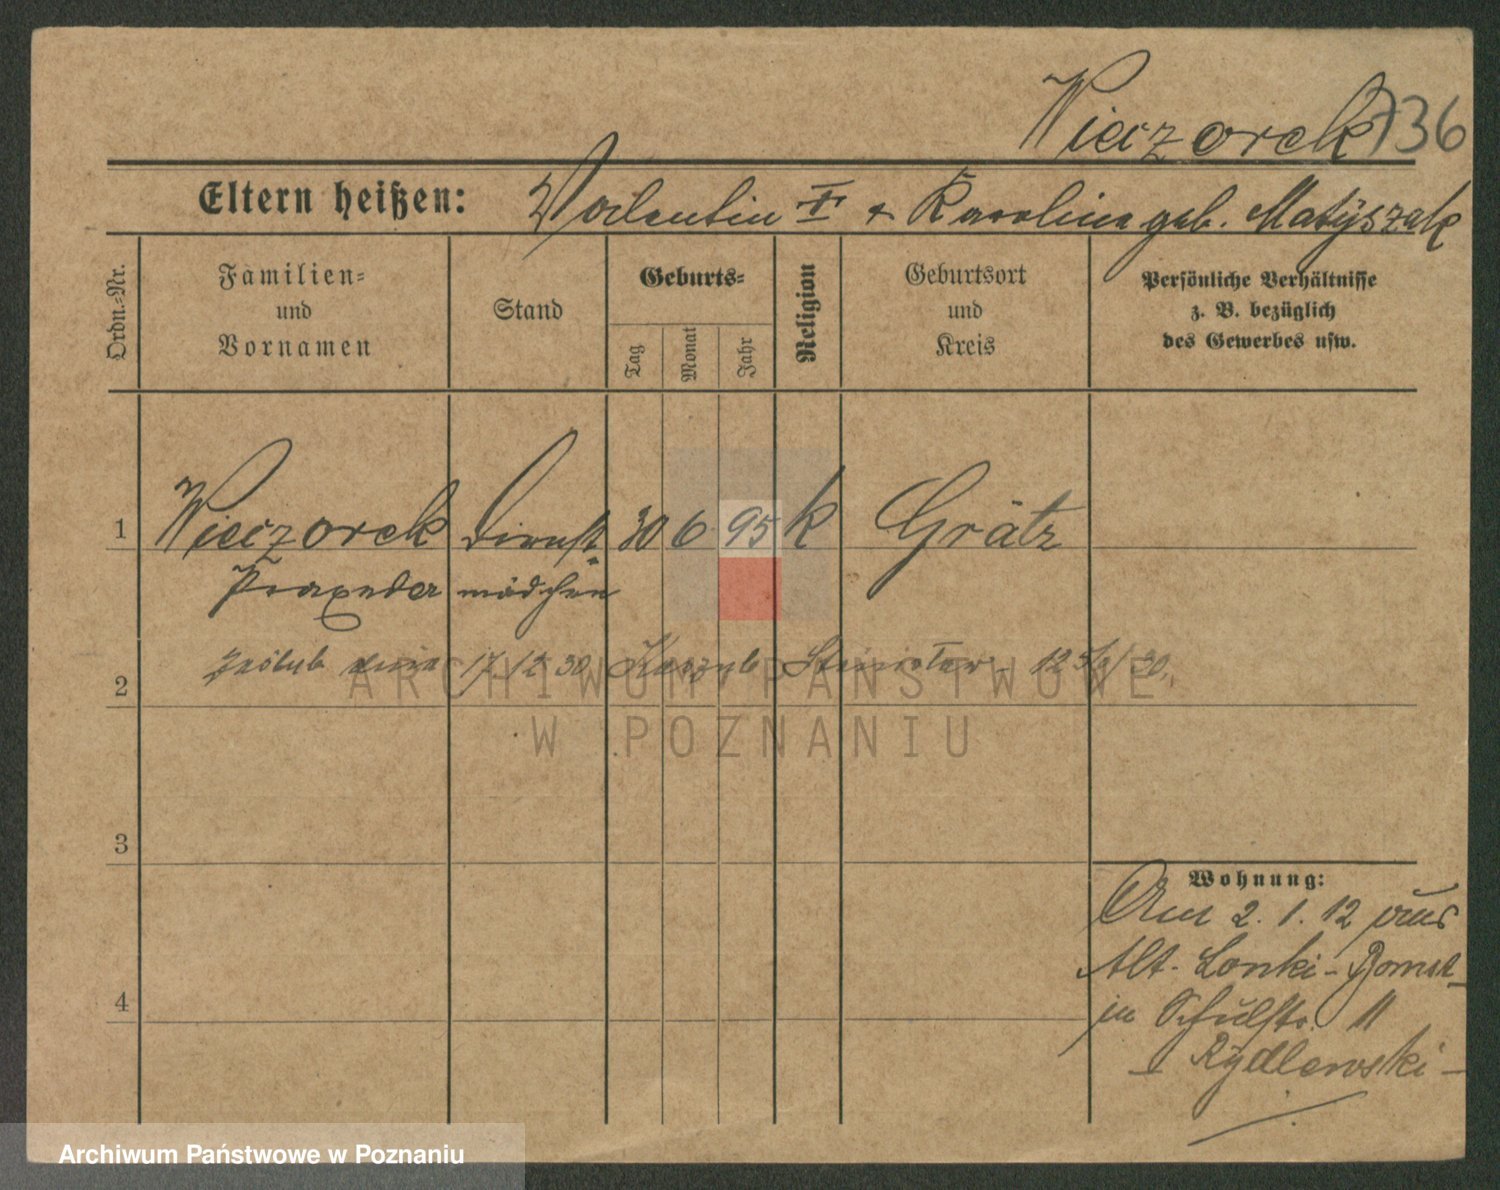 Wieczorek 736
Eltern heißen: Valentin † & Karolina geb. Matyszak
Ordn.-Nr.
Familien-
und
Vornamen
Stand
Geburts-
Tag
Monat
Jahr
Religion
Geburtsort
und
Kreis
Persönliche Verhältnisse
z. B. bezüglich
des Gewerbes usw.
1 Wieczorek Dienst- 30 6 95 k Grätz
Praxeda mädchen
2 ślub dnia 17.12.30 Stanisław 12
3
4
Wohnung:
Am 2. 1. 12 aus
Alt-Lonki-Bomst
in Schulstr. 11
I Rydlewski-
ARCHIWUM PAŃSTWOWE
W POZNANIU
Archiwum Państwowe w Poznaniu